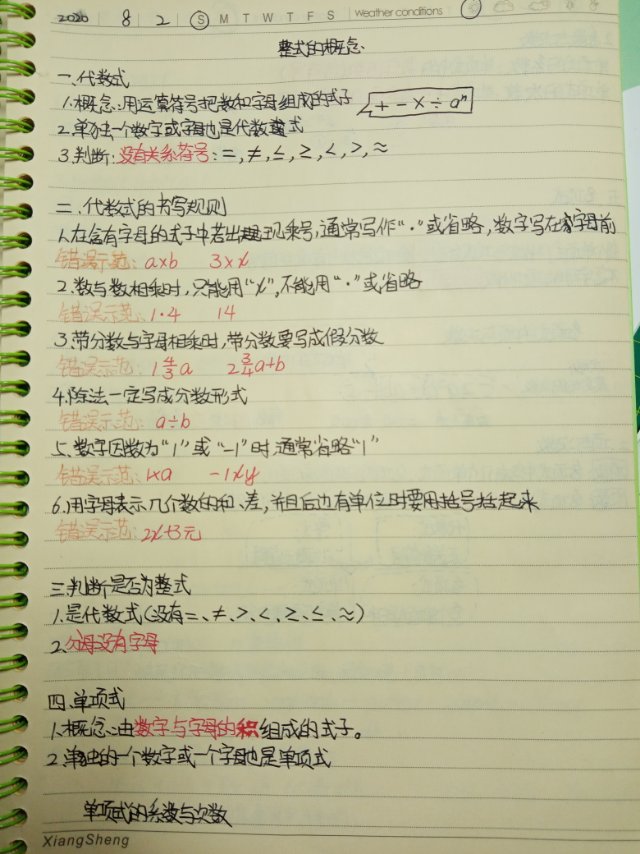 2020 8 2 S M T W T F S Weather conditions
整式的概念
一、代数式
1.概念:用运算符号把数和字母组成的式子 + - × ÷ aⁿ
2.单独一个数字或字母也是代数式
3.判断:没有关系符号:=,≠,≤,≥,<,>,≈
二、代数式的书写规则
1.在含有字母的式子中若出现乘号,通常写作“·”或省略,数字写在字母前
错误示范:a×b 3×x
2.数与数相乘时,只能用“×”,不能用“·”或省略
错误示范:1·4 14
3.带分数与字母相乘时,带分数要写成假分数
错误示范:1 4/3 a 2 3/4 a+b
4.除法一定写成分数形式
错误示范:a÷b
5.数字因数为“1”或“-1”时,通常省略“1”
错误示范:1×a -1xy
6.用字母表示几个数的和、差,并且后边有单位时要用括号括起来
错误示范:2x+3元
三.判断是否为整式
1.是代数式(没有=、≠、>、<、≥、≤、≈)
2.分母没有字母
四.单项式
1.概念:由数字与字母的积组成的式子。
2.单独的一个数字或一个字母也是单项式
单项式的系数与次数
XiangSheng